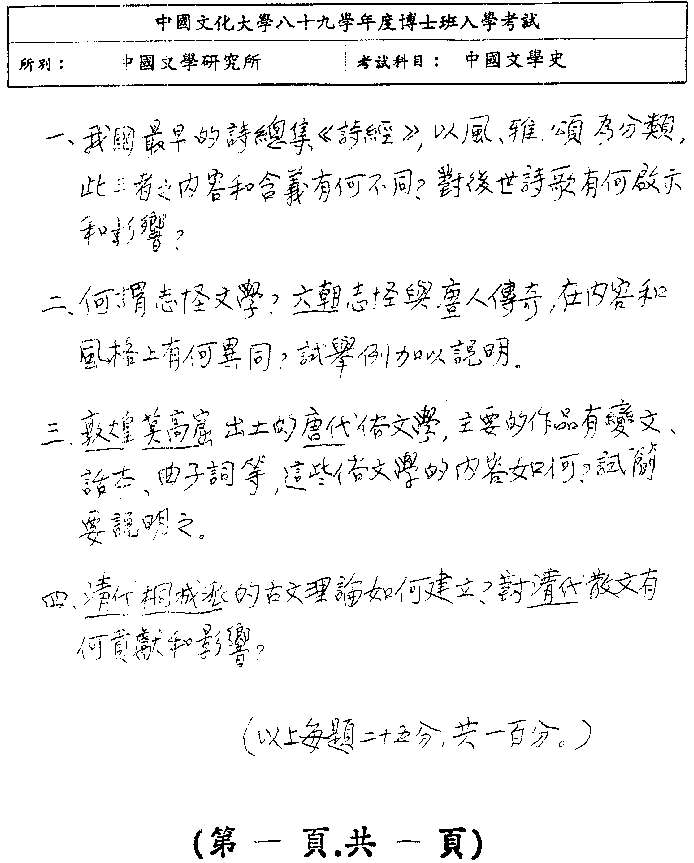 中國文化大學八十九學年度博士班入學考試
所別： 中國文學研究所 考試科目： 中國文學史
一、我國最早的詩總集《詩經》,以風、雅、頌為分類,
此三者之內容和含義有何不同？對後世詩歌有何啟示
和影響？
二、何謂志怪文學？六朝志怪與唐人傳奇,在內容和
風格上有何異同？試舉例加以說明。
三、敦煌莫高窟出土的唐代俗文學,主要的作品有變文、
話本、曲子詞等,這些俗文學的內容如何？試簡
要說明之。
四、清代桐城派的古文理論如何建立？對清代散文有
何貢獻和影響？
(以上每題二十五分,共一百分。)
(第一頁.共一頁)